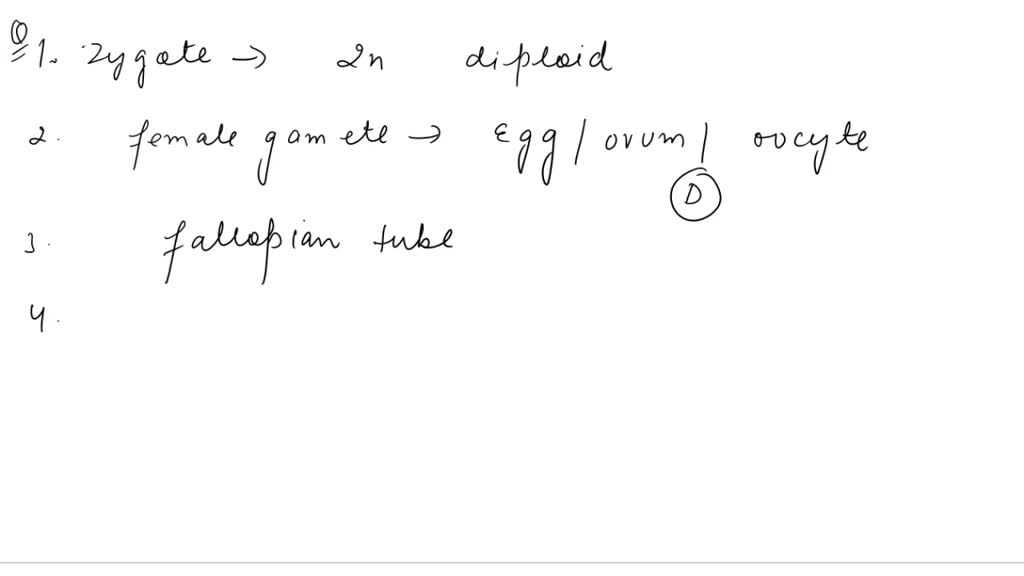 Q 1. Zygote → 2n diploid
2. female gamete → Egg / ovum / oocyte
D
3. fallopian tube
4.